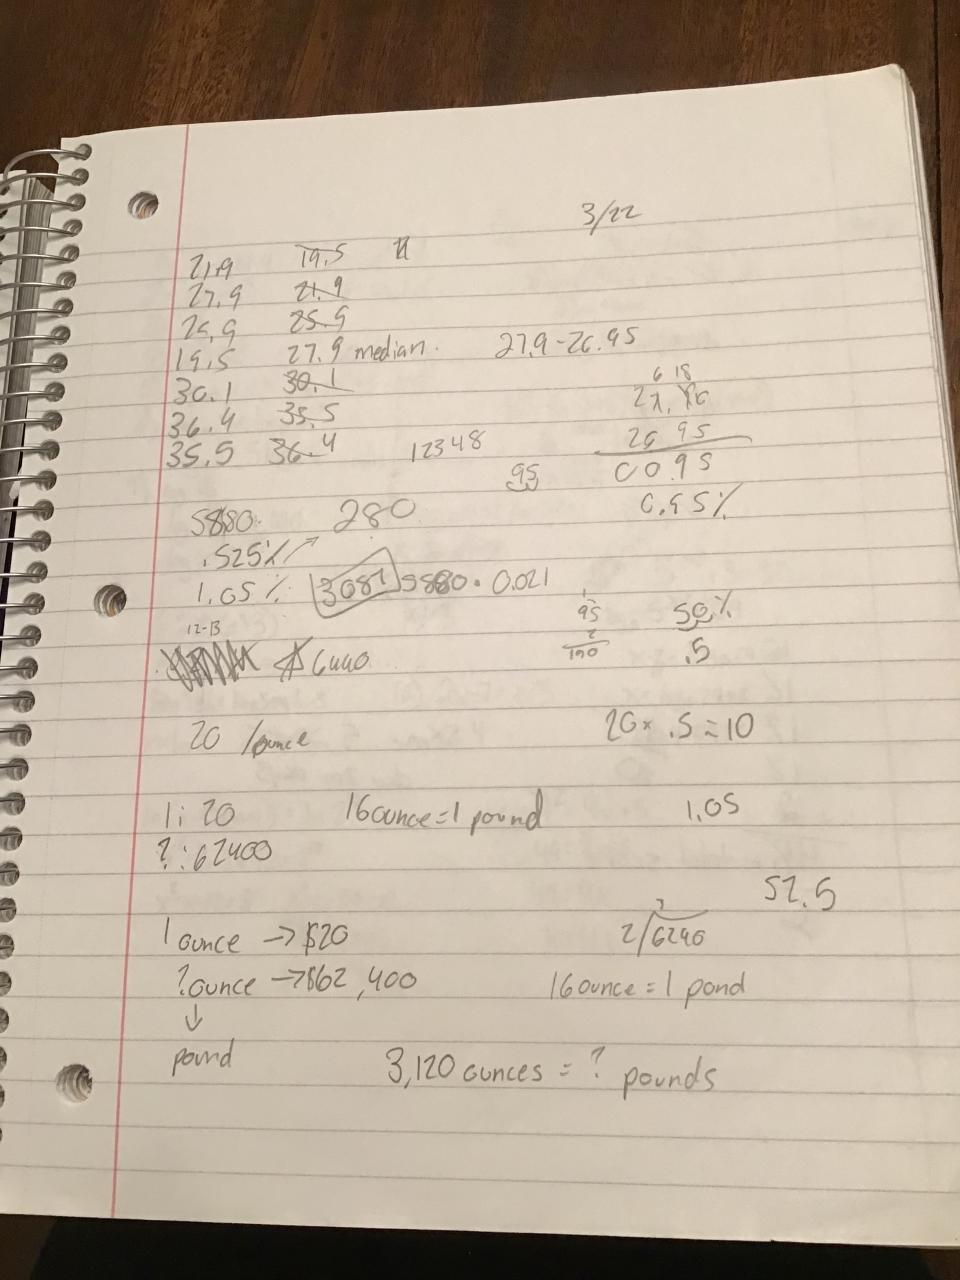 3/22
21.9 19.5
27.9 21.9
25.9 25.9
19.5 27.9 median. 27.9-26.95
30.1 30.1 6 18
36.4 35.5 26 95
35.5 36.4 12348 00.95
95 0.95%
5880 280
.525%
1.05% 3087 5880 · 0.021
1
95 50%
12-13 2
190 .5
20 /ounce 20 × .5 = 10
1: 20 16ounce=1 pound 1.05
? : 62400
52.5
1 ounce → $20 3
2/6240
? ounce → $62,400 16ounce = 1 pond
↓
pound 3,120 ounces = ? pounds